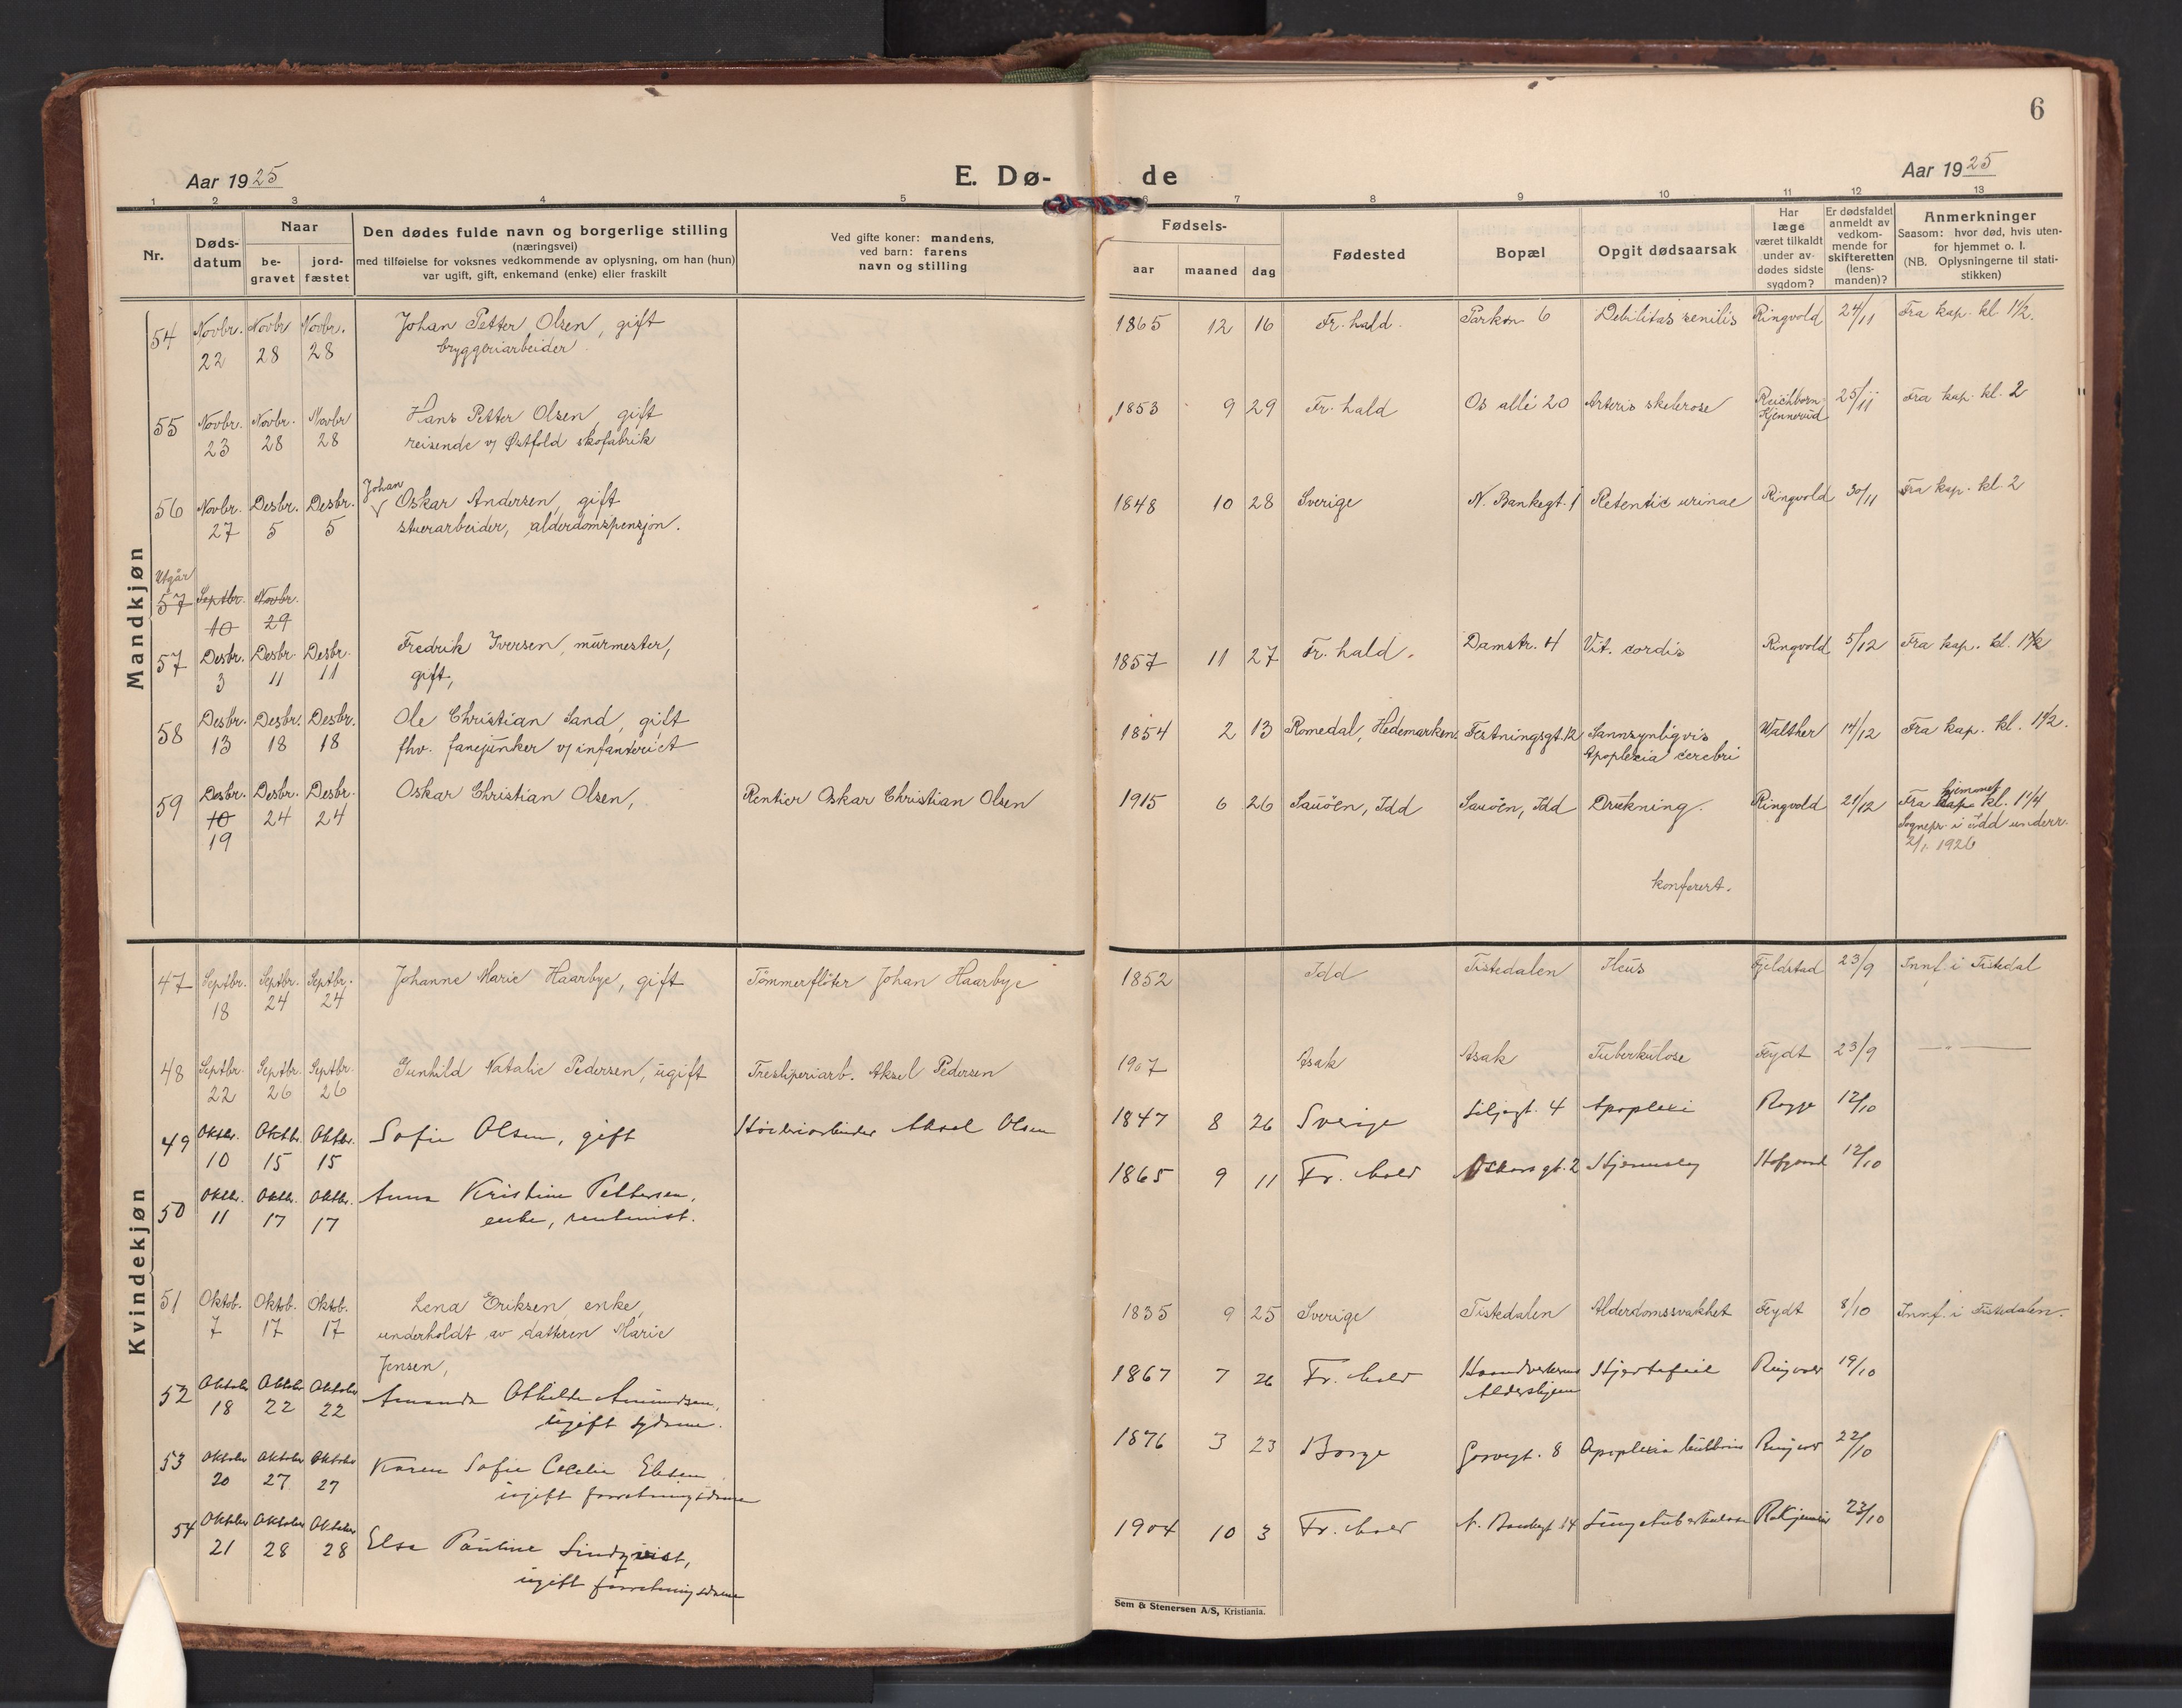 6
Aar 1925
E. Dø-
de
Aar 1925
1 2 3 4 5 6 7 8 9 10 11 12 13
Nr.
Døds-
datum
Naar
be-
gravet
jord-
fæstet
Den dødes fulde navn og borgerlige stilling
(næringsvei)
med tilføielse for voksnes vedkommende av oplysning, om han (hun)
var ugift, gift, enkemand (enke) eller fraskilt
Ved gifte koner: mandens,
ved barn: farens
navn og stilling
Fødsels-
aar maaned dag
Fødested
Bopæl
Opgit dødsaarsak
Har
læge
været tilkaldt
under av-
dødes sidste
sygdom?
Er dødsfaldet
anmeldt av
vedkom-
mende for
skifteretten
(lens-
manden)?
Anmerkninger
Saasom: hvor død, hvis uten-
for hjemmet o. l.
(NB. Oplysningerne til stati-
stikken)
Mandkjøn
54 Novbr. Novbr Novbr. Johan Petter Olsen, gift 1865 12 16 Fr.hald. Parken 6 Debilitas senilis Ringvold 24/11 Fra kap. kl. 1½.
22 28 28 bryggeriarbeider
55 Novbr. Novbr. Novbr Hans Petter Olsen, gift 1853 9 29 Fr. hald Os allé 20 Arterio sklerose Reichborn- 25/11 Fra kap. kl. 2
23 28 28 reisende v/ Østfold skofabrik Kjennerud
Johan
56 Novbr. Desbr. Desbr. Oskar Andersen, gift 1848 10 28 Sverige N. Bankegt. 1 Retentio urinae Ringvold 30/11 Fra kap. kl. 2
27 5 5 stuerarbeider, alderdomspensjon.
Utgår
57 Septbr. Novbr.
10 29
57 Desbr. Desbr. Desbr. Fredrik Iversen, murmester, 1857 11 27 Fr. hald. Damstr. 4 Vit. cordis Ringvold 5/12 Fra kap. kl. 1½
3 11 11 gift,
58 Desbr. Desbr. Desbr. Ole Christian Sand, gift 1854 2 13 Romedal, Hedemarken. Festningsgt. 12 Sannsynligvis Walther 14/12 Fra kap. kl. 1½.
13 18 18 fhv. fanejunker v/ infanteriet Apoplexia cerebri
59 Desbr. Desbr. Desbr. Oskar Christian Olsen, Rentier Oskar Christian Olsen 1915 6 26 Sauöen, Idd Sauöen, Idd Drukning. Ringvold 21/12 Fra kap. hjemmet kl. 1¼
10 24 24
19
Sognepr. i Idd underr.
2/1. 1926
konferert.
Kvindekjøn
47 Septbr. Septbr. Septbr. Johanne Marie Haarbye, gift Tømmerfløter Johan Haarbye 1852 Idd Tistedalen Ileus Fjeldstad 23/9 Innf. i Tistedal
18 24 24
48 Septbr. Septbr. Septbr. Gunhild Natalie Pedersen, ugift Tresliperiarb. Aksel Pedersen 1907 Asak Asak Tuberkulose Feydt 23/9 — " —
22 26 26
49 Oktbr. Oktbr. Oktbr. Sofie Olsen, gift Aksel Olsen 1847 8 26 Sverige Liljegt. 4 Apoplexi Rogge 12/10
10 15 15
50 Oktbr. Oktbr. Oktbr. Anna Kristine Pettersen, 1865 9 11 Fr. hald Oskars gt. 2 Hofgaard 12/10
11 17 17 enke,
51 Oktob. Oktob. Oktob. Lena Eriksen, enke, 1835 9 25 Sverige Tistedalen Alderdomssvakhet Feydt 8/10 Innf. i Tistedalen.
7 17 17 underholdt av datteren Marie
Jensen,
52 Oktober Oktober Oktober Amanda Othilde Amundsen, 1867 7 26 Fr. hald Haandverkernes Hjertefeil Ringvold 19/10
18 22 22 ugift sydame. Aldershjem
53 Oktober Oktober Oktober Karen Sofie Cecelie Ebsen 1876 3 23 Borge 8 Apoplexia Ringvold 22/10
20 27 27 ugift forretningsdame
54 Oktober Oktober Oktober Elsa Pauline Lindqvist, 1904 10 3 Fr. hald N. Bankegt. 14 Lungetuberkulose 23/10
21 28 28 ugift forretningsdame
Sem & Stenersen A/S, Kristiania.